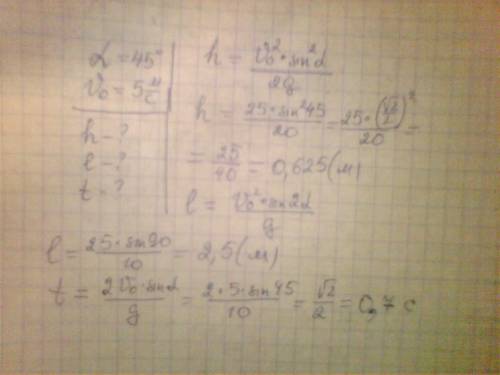 α = 45°
V₀ = 5 м/с
h - ?
l - ?
t - ?
h = V₀² · sin²α / 2g
h = 25 · sin²45 / 20 = 25 · (√2/2)² / 20 =
= 25/40 = 0,625 (м)
l = V₀² · sin2α / g
l = 25 · sin90 / 10 = 2,5 (м)
t = 2V₀ · sinα / g = 2 · 5 · sin45 / 10 = √2/2 = 0,7 с